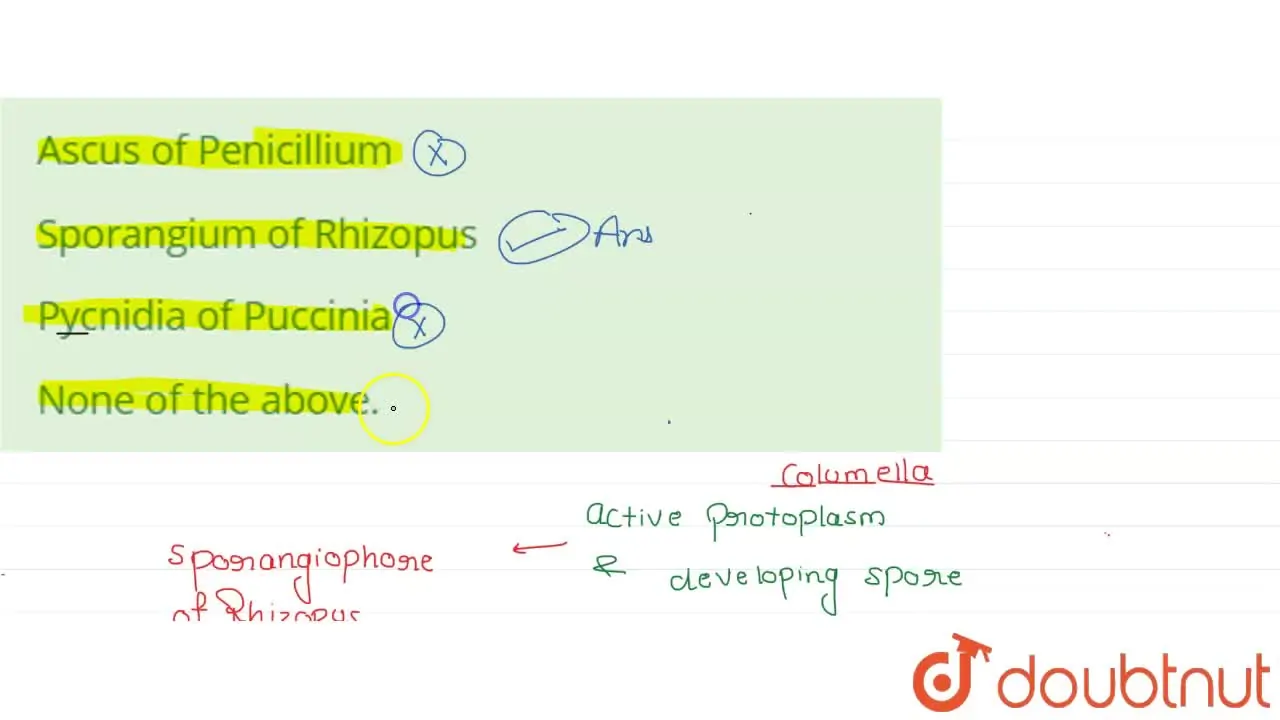 Ascus of Penicillium X
Sporangium of Rhizopus Ans
Pycnidia of Puccinia X
None of the above.
Columella
active protoplasm
& developing spore
Sporangiophore
of Rhizopus
doubtnut